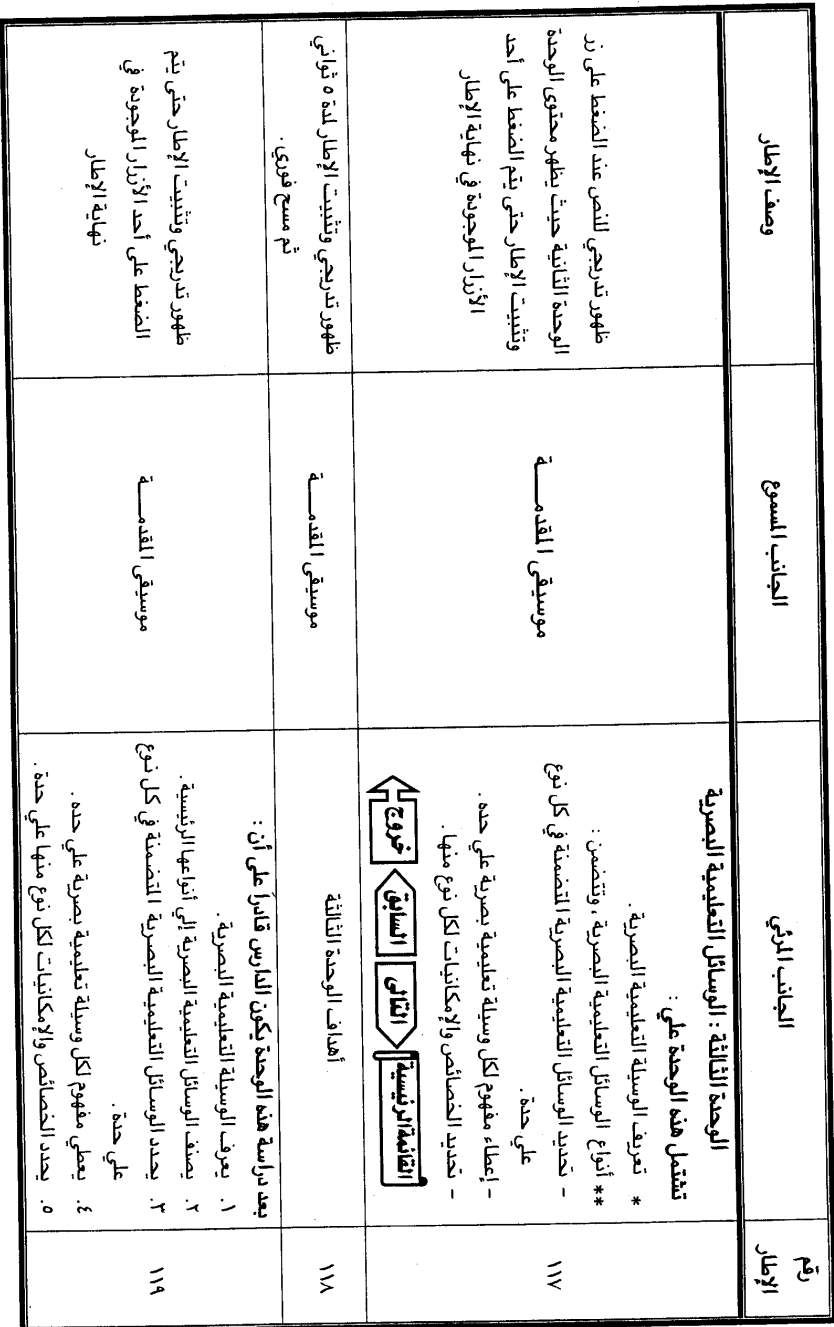 رقم
الإطار
الجانب المرئي
الجانب المسموع
وصف الإطار
١١٧
الوحدة الثالثة : الوسائل التعليمية البصرية
تشتمل هذه الوحدة علي :
* تعريف الوسيلة التعليمية البصرية .
** أنواع الوسائل التعليمية البصرية ، وتتضمن :
- تحديد الوسائل التعليمية البصرية المتضمنة في كل نوع
علي حدة .
- إعطاء مفهوم لكل وسيلة تعليمية بصرية علي حده .
- تحديد الخصائص والإمكانيات لكل نوع منها .
القائمة الرئيسية
التالى
السابق
خروج
موسيقى المقدمـــــة
ظهور تدريجي للنص عند الضغط على زر
الوحدة الثانية حيث يظهر محتوى الوحدة
وتثبيت الإطار حتى يتم الضغط على أحد
الأزرار الموجودة في نهاية الإطار
١١٨
أهداف الوحدة الثالثة
موسيقى المقدمـــــة
ظهور تدريجي وتثبيت الإطار لمدة ٥ ثواني
ثم مسح فوري .
١١٩
بعد دراسة هذه الوحدة يكون الدارس قادراً على أن :
١. يعرف الوسيلة التعليمية البصرية .
٢. يصنف الوسائل التعليمية البصرية إلى أنواعها الرئيسية .
٣. يحدد الوسائل التعليمية البصرية المتضمنة في كل نوع
علي حدة .
٤. يعطي مفهوم لكل وسيلة تعليمية بصرية علي حده .
٥. يحدد الخصائص والإمكانيات لكل نوع منها علي حدة .
موسيقى المقدمـــــة
ظهور تدريجي وتثبيت الإطار حتى يتم
الضغط على أحد الأزرار الموجودة في
نهاية الإطار